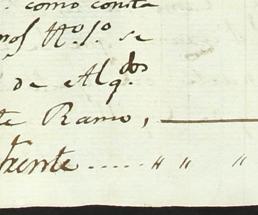 como consta
Nº 1º se
de Alqdos
te Ramo,
frente ..... " " "